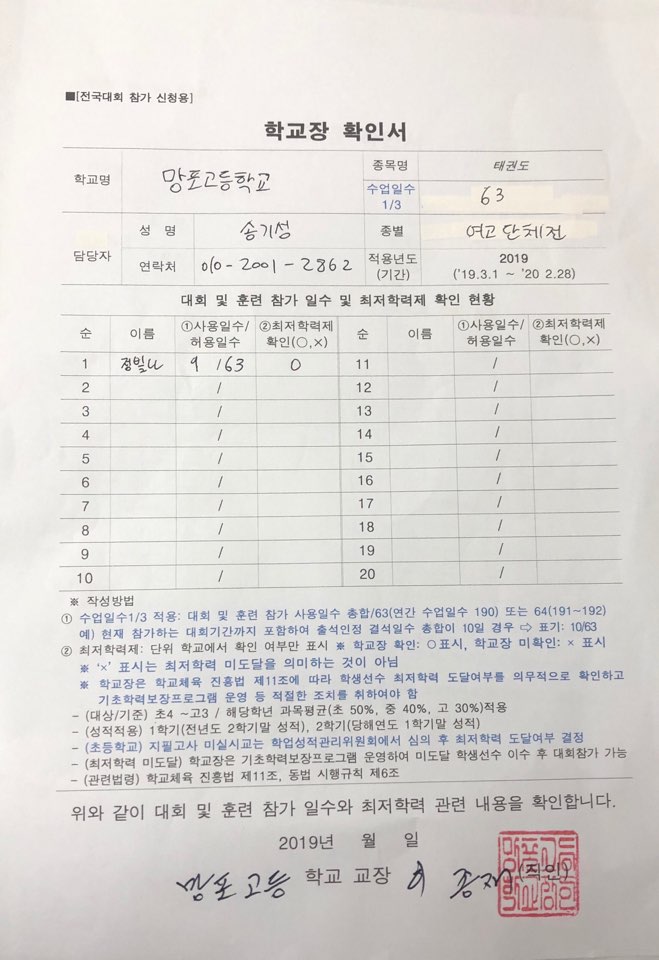 ■[전국대회 참가 신청용]
학교장 확인서
학교명 망포고등학교 종목명 태권도
수업일수 1/3 63
담당자 성 명 송기성 종별 여고단체전
연락처 010-2001-2862 적용년도 (기간) 2019 ('19.3.1 ~ '20 2.28)
대회 및 훈련 참가 일수 및 최저학력제 확인 현황
순 이름 ①사용일수/허용일수 ②최저학력제 확인(○,×) 순 이름 ①사용일수/허용일수 ②최저학력제 확인(○,×)
1 정빛나 9 /63 O 11 /
2 / 12 /
3 / 13 /
4 / 14 /
5 / 15 /
6 / 16 /
7 / 17 /
8 / 18 /
9 / 19 /
10 / 20 /
※ 작성방법
① 수업일수1/3 적용: 대회 및 훈련 참가 사용일수 총합/63(연간 수업일수 190) 또는 64(191~192)
예) 현재 참가하는 대회기간까지 포함하여 출석인정 결석일수 총합이 10일 경우 ⇨ 표기: 10/63
② 최저학력제: 단위 학교에서 확인 여부만 표시 ※ 학교장 확인: ○표시, 학교장 미확인: × 표시
※ '×' 표시는 최저학력 미도달을 의미하는 것이 아님
※ 학교장은 학교체육 진흥법 제11조에 따라 학생선수 최저학력 도달여부를 의무적으로 확인하고
기초학력보장프로그램 운영 등 적절한 조치를 취하여야 함
- (대상/기준) 초4 ~고3 / 해당학년 과목평균(초 50%, 중 40%, 고 30%)적용
- (성적적용) 1학기(전년도 2학기말 성적), 2학기(당해연도 1학기말 성적)
- (초등학교) 지필고사 미실시교는 학업성적관리위원회에서 심의 후 최저학력 도달여부 결정
- (최저학력 미도달) 학교장은 기초학력보장프로그램 운영하여 미도달 학생선수 이수 후 대회참가 가능
- (관련법령) 학교체육 진흥법 제11조, 동법 시행규칙 제6조
위와 같이 대회 및 훈련 참가 일수와 최저학력 관련 내용을 확인합니다.
2019년 월 일
망포고등 학교 교장 (직인)